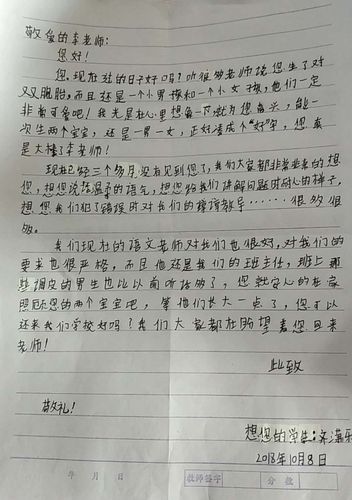 敬爱的李老师:
您好!
您现在过的日子好吗?听很多老师说您生了对
双胞胎,而且还是一个小男孩和一个小女孩,他们一定
非常可爱吧!我光是在心里想象一下就为您高兴,能一
次生两个宝宝,还是一男一女,正好凑成个"好"字,您真
是太棒了李老师!
现在已经三个多月没有见到您了,我们大家都非常非常的想
您,想您说话温柔的语气,想您给我们讲解问题时耐心的样子,
想您我们犯了错误时对我们的谆谆教导……很多很
多。
我们现在的语文老师对我们也很好,对我们的
要求也很严格,而且他还是我们的班主任,班上那
些调皮的男生也比以前听话够了,您就安心的在家
照顾您的两个宝宝吧,等他们长大一点了,您可以
还来我们学校好吗?我们大家都在盼望着您回来
老师!
此致
敬礼!
想您的学生:
2018年10月8日
年 月 日 教师签字 分 数